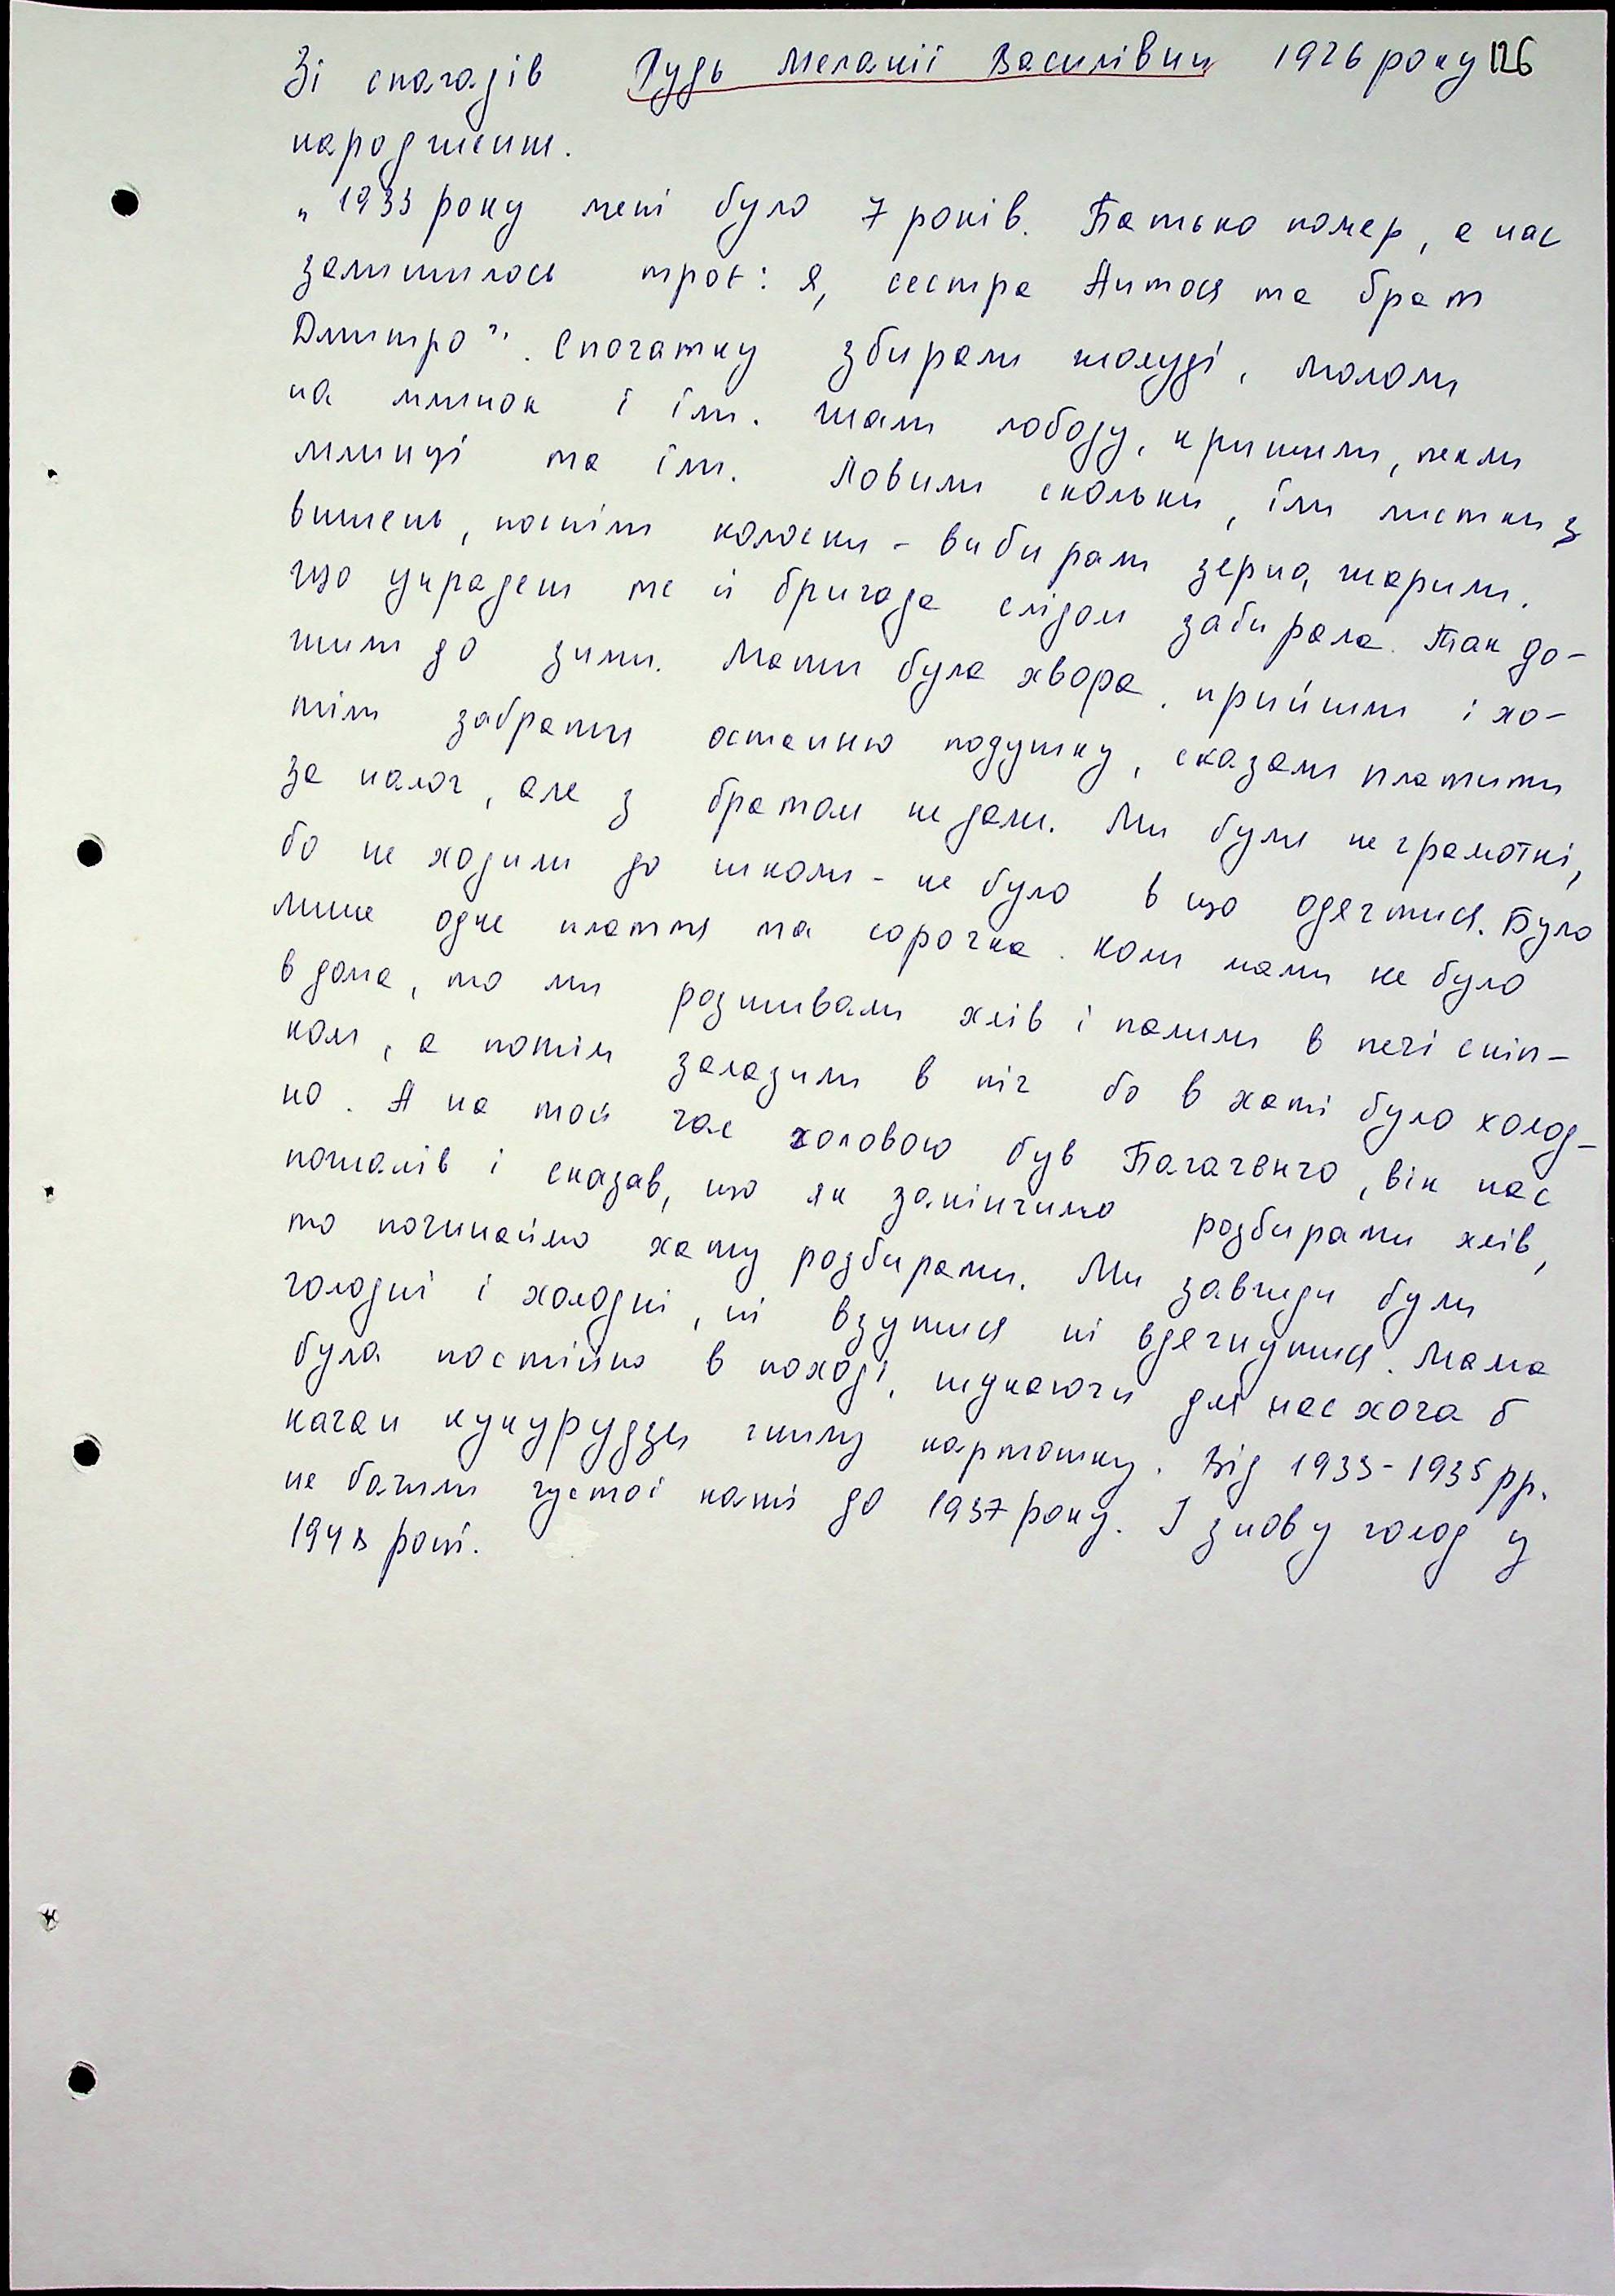 Зі спогадів Рудь Меланії Василівни 1926 року 126
народження.
„1933 року мені було 7 років. Батько помер, а нас
залишилось троє: я, сестра Антося та брат
Дмитро". Спочатку збирали жолуді, мололи
на млинок і їли. Жали лободу, кришили, пекли
млинці та їли. Ловили скольки, їли листки з
вишень, поспіли колоски - вибирали зерно, жарили.
Що украдем те й бригада слідом забирала. Так до-
жили до зими. Мати була хвора, прийшли і хо-
тіли забрати останню подушку, сказали платити
за налог, але з братом не дали. Ми були не грамотні,
бо не ходили до школи - не було в що одягтися. Було
лише одне плаття та сорочка. Коли мами не було
в дома, то ми розшивали хлів і палили в печі сніп-
ком, а потім залазили в піч бо в хаті було холод-
но. А на той час головою був Багаченко, він нас
пожалів і сказав, що як закінчимо розбирати хлів,
то починаймо хату розбирати. Ми завжди були
голодні і холодні, ні взутися ні вдягнутися. Мама
була постійно в поході, шукаючи для нас хоча б
качан кукурудзи гнилу картошку. Від 1933-1935 рр.
не бачили густої каші до 1937 року. І знову голод у
194 році.